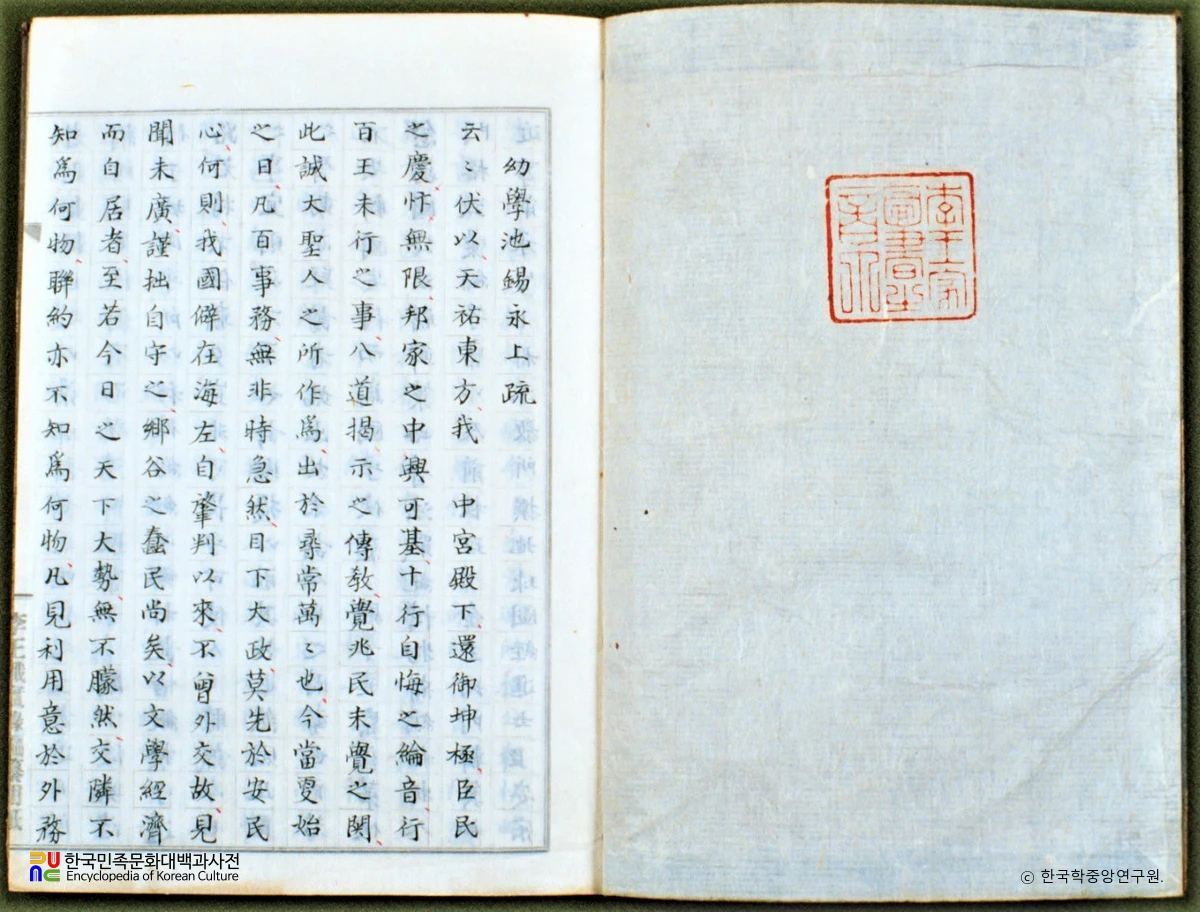 幼學池錫永上疏
云〻伏以天祐東方我 中宮殿下還御坤極臣民
之慶忭無限邦家之中興可基十行自悔之綸音行
百王未行之事八道揭示之傳教覺兆民未覺之関
此誠大聖人之所作爲出於尋常萬〻也今當更始
之日凡百事務無非時急然目下大政莫先於安民
心何則我國僻在海左自肇判以來不曾外交故見
聞未廣謹拙自守之鄕谷之蠢民尚矣以文學經濟
而自居者至若今日之天下大勢無不朦然交隣不
知爲何物聯約亦不知爲何物凡見利用意於外務
李王家圖書之章
한국민족문화대백과사전
Encyclopedia of Korean Culture
ⓒ 한국학중앙연구원.